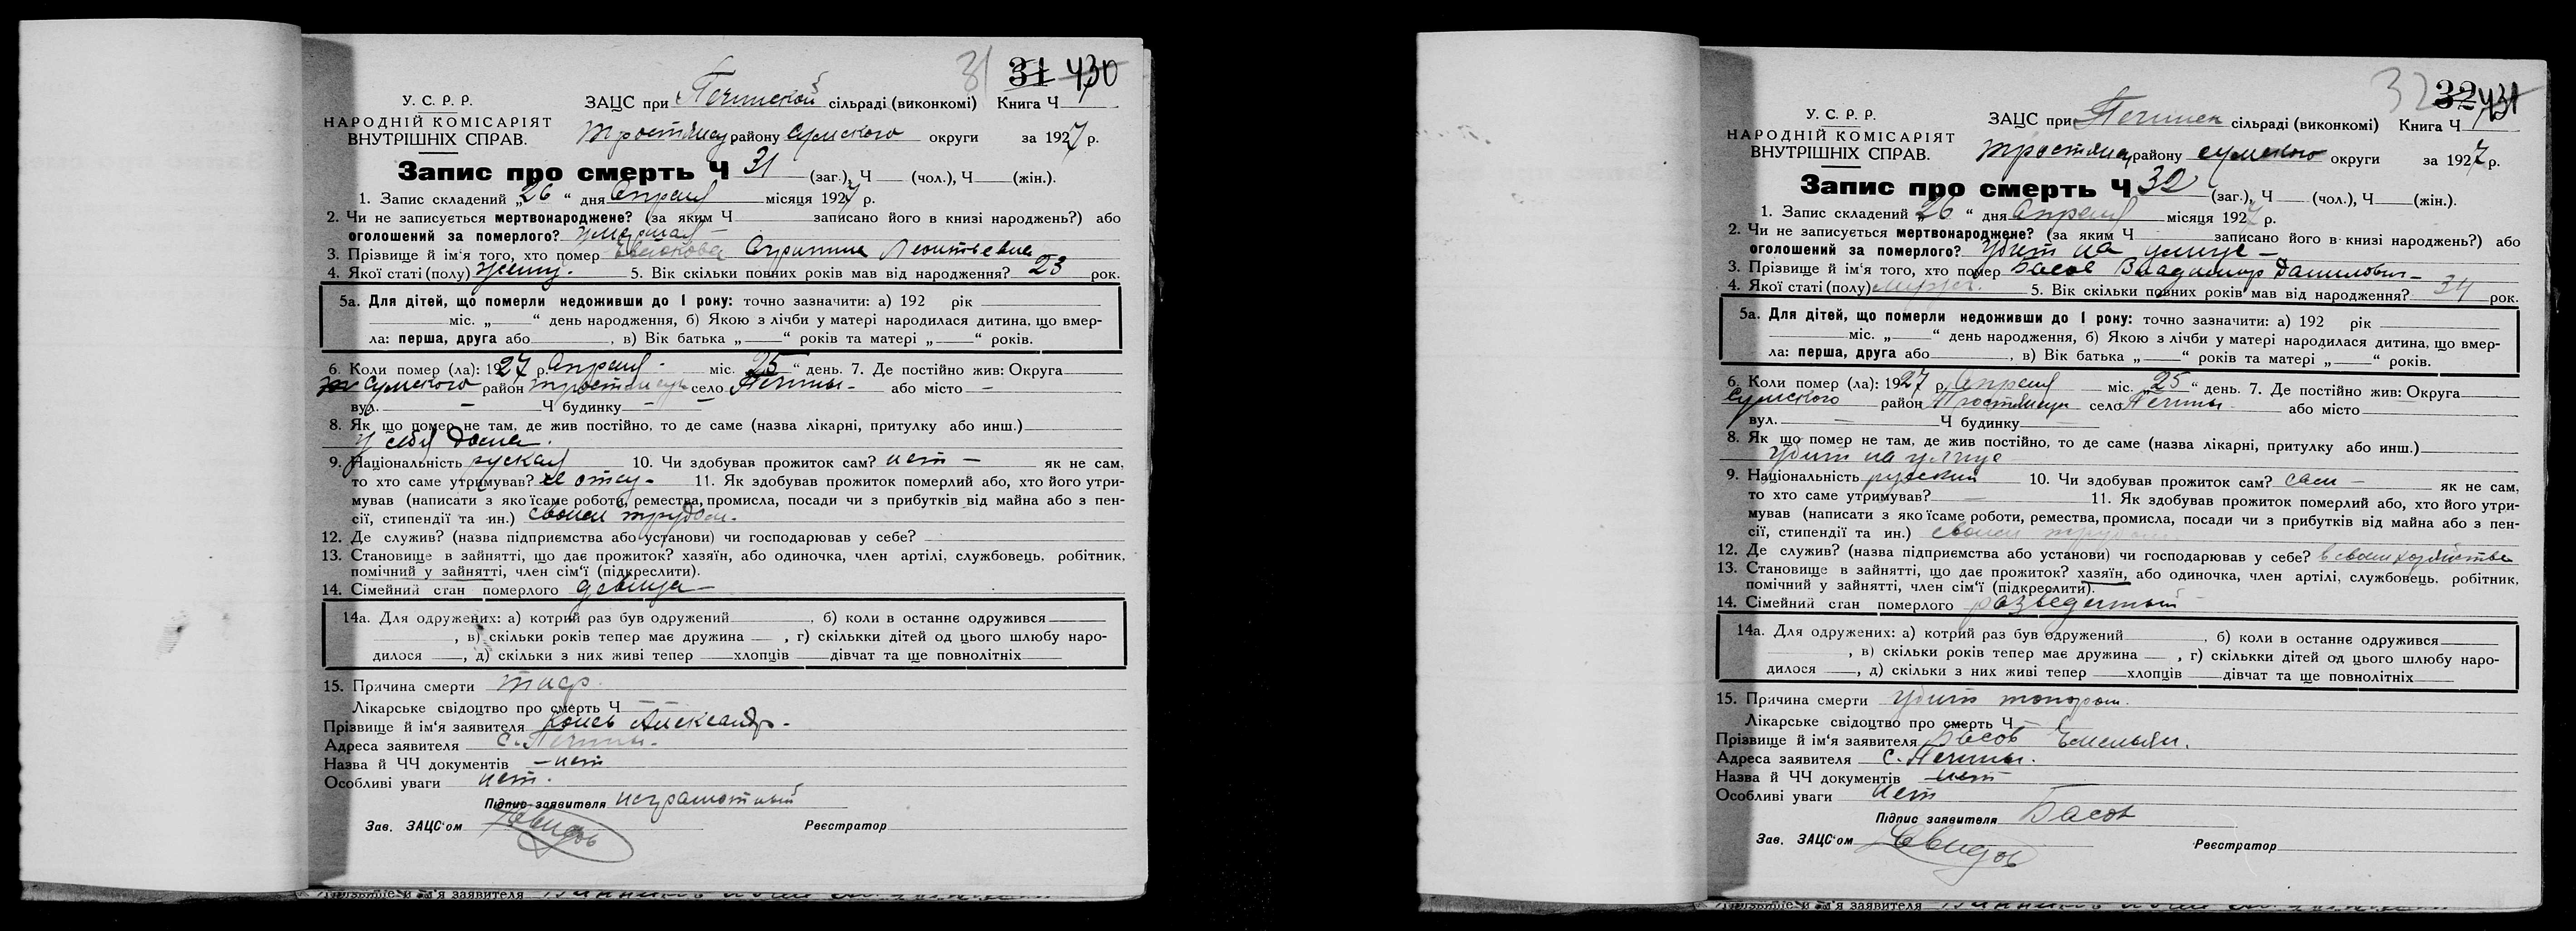 31 31 430
У. С. Р. Р.
НАРОДНІЙ КОМІСАРІЯТ
ВНУТРІШНІХ СПРАВ.
ЗАЦС при Печинской сільраді (виконкомі) Книга Ч
Тростянец району Сумского округи за 1927 р.
Запис про смерть Ч 31 (заг.), Ч (чол.), Ч (жін.).
1. Запис складений „26“ дня Апреля місяця 1927 р.
2. Чи не записується мертвонароджене? (за яким Ч записано його в книзі народжень?) або
оголошений за померлого? умершая
3. Прізвище й ім'я того, хто помер Леонтьевна
4. Якої статі (полу) женщ. 5. Вік скільки повних років мав від народження? 23 рок.
5а. Для дітей, що померли недоживши до 1 року: точно зазначити: а) 192 рік
міс. „ “ день народження, б) Якою з лічби у матері народилася дитина, що вмер-
ла: перша, друга або , в) Вік батька „ “ років та матері „ “ років.
6. Коли помер (ла): 1927 р. Апреля міс. 25 “ день. 7. Де постійно жив: Округа
Сумского район Тростянец село Печины - або місто -
вул. - Ч будинку -
8. Як що помер не там, де жив постійно, то де саме (назва лікарні, притулку або инш.)
У себя дома.
9. Національність руская 10. Чи здобував прожиток сам? нет - як не сам,
то хто саме утримував? отец - 11. Як здобував прожиток померлий або, хто його утри-
мував (написати з якоїсаме роботи, ремества, промисла, посади чи з прибутків від майна або з пен-
сії, стипендії та ин.) своим трудом.
12. Де служив? (назва підприємства або установи) чи господарював у себе?
13. Становище в зайнятті, що дає прожиток? хазяїн, або одиночка, член артілі, службовець, робітник,
помічний у зайнятті, член сім'ї (підкреслити).
14. Сімейний стан померлого девица
14а. Для одружених: а) котрий раз був одружений , б) коли в останнє одружився
, в) скільки років тепер має дружина , г) скількки дітей од цього шлюбу наро-
дилося , д) скільки з них живі тепер хлопців дівчат та ще повнолітніх
15. Причина смерти тиф.
Лікарське свідоцтво про смерть Ч -
Прізвище й ім'я заявителя Александр.
Адреса заявителя с. Печины.
Назва й ЧЧ документів - нет
Особливі уваги нет.
Підпис заявителя неграмотный
Зав. ЗАЦС'ом Реєстратор
Прізвище й ім'я заявителя
32 32 431
У. С. Р. Р.
НАРОДНІЙ КОМІСАРІЯТ
ВНУТРІШНІХ СПРАВ.
ЗАЦС при Печинск сільраді (виконкомі) Книга Ч
Тростянец району Сумского округи за 1927 р.
Запис про смерть Ч 32 (заг.), Ч (чол.), Ч (жін.).
1. Запис складений „26“ дня Апреля місяця 1927 р.
2. Чи не записується мертвонароджене? (за яким Ч записано його в книзі народжень?) або
оголошений за померлого? убит на улице -
3. Прізвище й ім'я того, хто помер Басов Владимир Данилович
4. Якої статі (полу) мужск. 5. Вік скільки повних років мав від народження? 34 рок.
5а. Для дітей, що померли недоживши до 1 року: точно зазначити: а) 192 рік
міс. „ “ день народження, б) Якою з лічби у матері народилася дитина, що вмер-
ла: перша, друга або , в) Вік батька „ “ років та матері „ “ років.
6. Коли помер (ла): 1927 р. Апреля міс. „25“ день. 7. Де постійно жив: Округа
Сумского район Тростянец село Печины. або місто
вул. - Ч будинку -
8. Як що помер не там, де жив постійно, то де саме (назва лікарні, притулку або инш.)
убит на улице
9. Національність руский 10. Чи здобував прожиток сам? сам - як не сам,
то хто саме утримував? - 11. Як здобував прожиток померлий або, хто його утри-
мував (написати з якоїсаме роботи, ремества, промисла, посади чи з прибутків від майна або з пен-
сії, стипендії та ин.) своим трудом
12. Де служив? (назва підприємства або установи) чи господарював у себе? в своем хозяйстве
13. Становище в зайнятті, що дає прожиток? хазяїн, або одиночка, член артілі, службовець, робітник,
помічний у зайнятті, член сім'ї (підкреслити).
14. Сімейний стан померлого разведенный
14а. Для одружених: а) котрий раз був одружений , б) коли в останнє одружився
, в) скільки років тепер має дружина , г) скількки дітей од цього шлюбу наро-
дилося , д) скільки з них живі тепер хлопців дівчат та ще повнолітніх
15. Причина смерти убит топором.
Лікарське свідоцтво про смерть Ч -
Прізвище й ім'я заявителя Басов Емельян.
Адреса заявителя с. Печины.
Назва й ЧЧ документів - нет
Особливі уваги нет
Підпис заявителя Басов
Зав. ЗАЦС'ом Реєстратор
Прізвище й ім'я заявителя